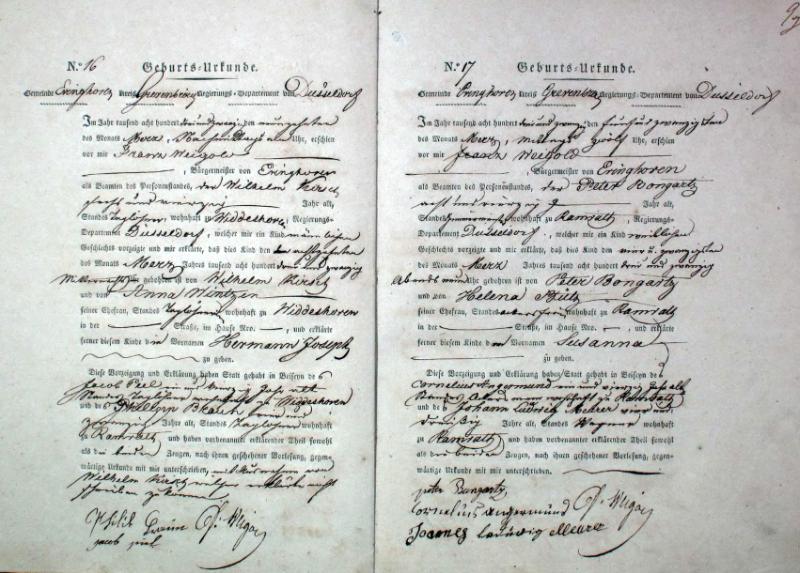 N.º 16 Geburts-Urkunde.
Gemeinde Evinghoven Kreis Grevenbroich Regierungs-Departement von Düsseldorf
Im Jahr tausend acht hundert drei und zwanzig den neunzehnten
des Monats Merz, Nachmittags Uhr, erschien
vor mir Franz Weigold
, Bürgermeister von Evinghoven
als Beamten des Personenstandes, der Wilhelm Kirsch
sechs und vierzig Jahr alt,
Standes Taglöhner wohnhaft zu Widdeshoven, Regierungs-
Departement Düsseldorf, welcher mir ein Kind männlichen
Geschlechts vorzeigte und mir erklärte, daß dies Kind den achtzehnten
des Monats Merz Jahres tausend acht hundert drei und zwanzig
Uhr gebohren ist von Wilhelm Kirsch
und von Anna Wintzen
seiner Ehefrau, Standes Taglöhner wohnhaft zu Widdeshoven
in der Straße, im Hause Nro. , und erklärte
ferner diesem Kinde den Vornamen Hermann Joseph
zu geben.
Diese Vorzeigung und Erklärung haben Statt gehabt in Beiseyn des
Jacob Piel und vierzig Jahr alt
Standes Taglöhner wohnhaft zu Widdeshoven
und des Philipp
zwanzig Jahre alt, Standes Taglöhner wohnhaft
zu Ramrath und haben vorbenannter erklärender Theil sowohl
als die beiden Zeugen, nach ihnen geschehener Vorlesung, gegen-
wärtige Urkunde mit mir unterschrieben, mit Ausnahme von
Wilhelm Kirsch welcher erklärte nicht
schreiben zu können
Philip
jacob piel
N.º 17 Geburts-Urkunde.
Gemeinde Evinghoven Kreis Grevenbroich Regierungs-Departement von Düsseldorf
Im Jahr tausend acht hundert drei und zwanzig den fünf und zwanzigsten
des Monats Merz, mittags zwölf Uhr, erschien
vor mir Franz Weigold
, Bürgermeister von Evinghoven
als Beamten des Personenstandes, der Peter Bongartz
acht und vierzig Jahr alt,
Standes wohnhaft zu Ramrath, Regierungs-
Departement Düsseldorf, welcher mir ein Kind weiblichen
Geschlechts vorzeigte und mir erklärte, daß dies Kind den vier und zwanzigsten
des Monats Merz Jahres tausend acht hundert drei und zwanzig
Abends neun Uhr gebohren ist von Peter Bongartz
und von Helena
seiner Ehefrau, Standes Ackersfrau wohnhaft zu Ramrath
in der Straße, im Hause Nro. , und erklärte
ferner diesem Kinde den Vornamen Susanna
zu geben.
Diese Vorzeigung und Erklärung haben Statt gehabt in Beiseyn des
Cornelius Angermund ein und vierzig Jahr alt
Standes Ackersmann wohnhaft zu Ramrath
und des Johann Ludwig Meurer vier und
dreißig Jahre alt, Standes Wagner wohnhaft
zu Ramrath und haben vorbenannter erklärender Theil sowohl
als die beiden Zeugen, nach ihnen geschehener Vorlesung, gegen-
wärtige Urkunde mit mir unterschrieben.
peter Bongartz
cornelius angermund
Joannes Ludwig Meurer